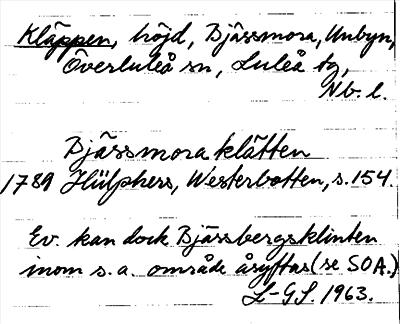 Kläppen, höjd, Bjässmora, Unbyn,
Överluleå sn, Luleå tg,
Nb. l.
Bjässmora klätten
1789 Hülphers, Westerbotten, s. 154.
Ev. kan dock Bjässbergsklinten
inom s. a. område åsyftas (se SOA.)
L-GL. 1963.